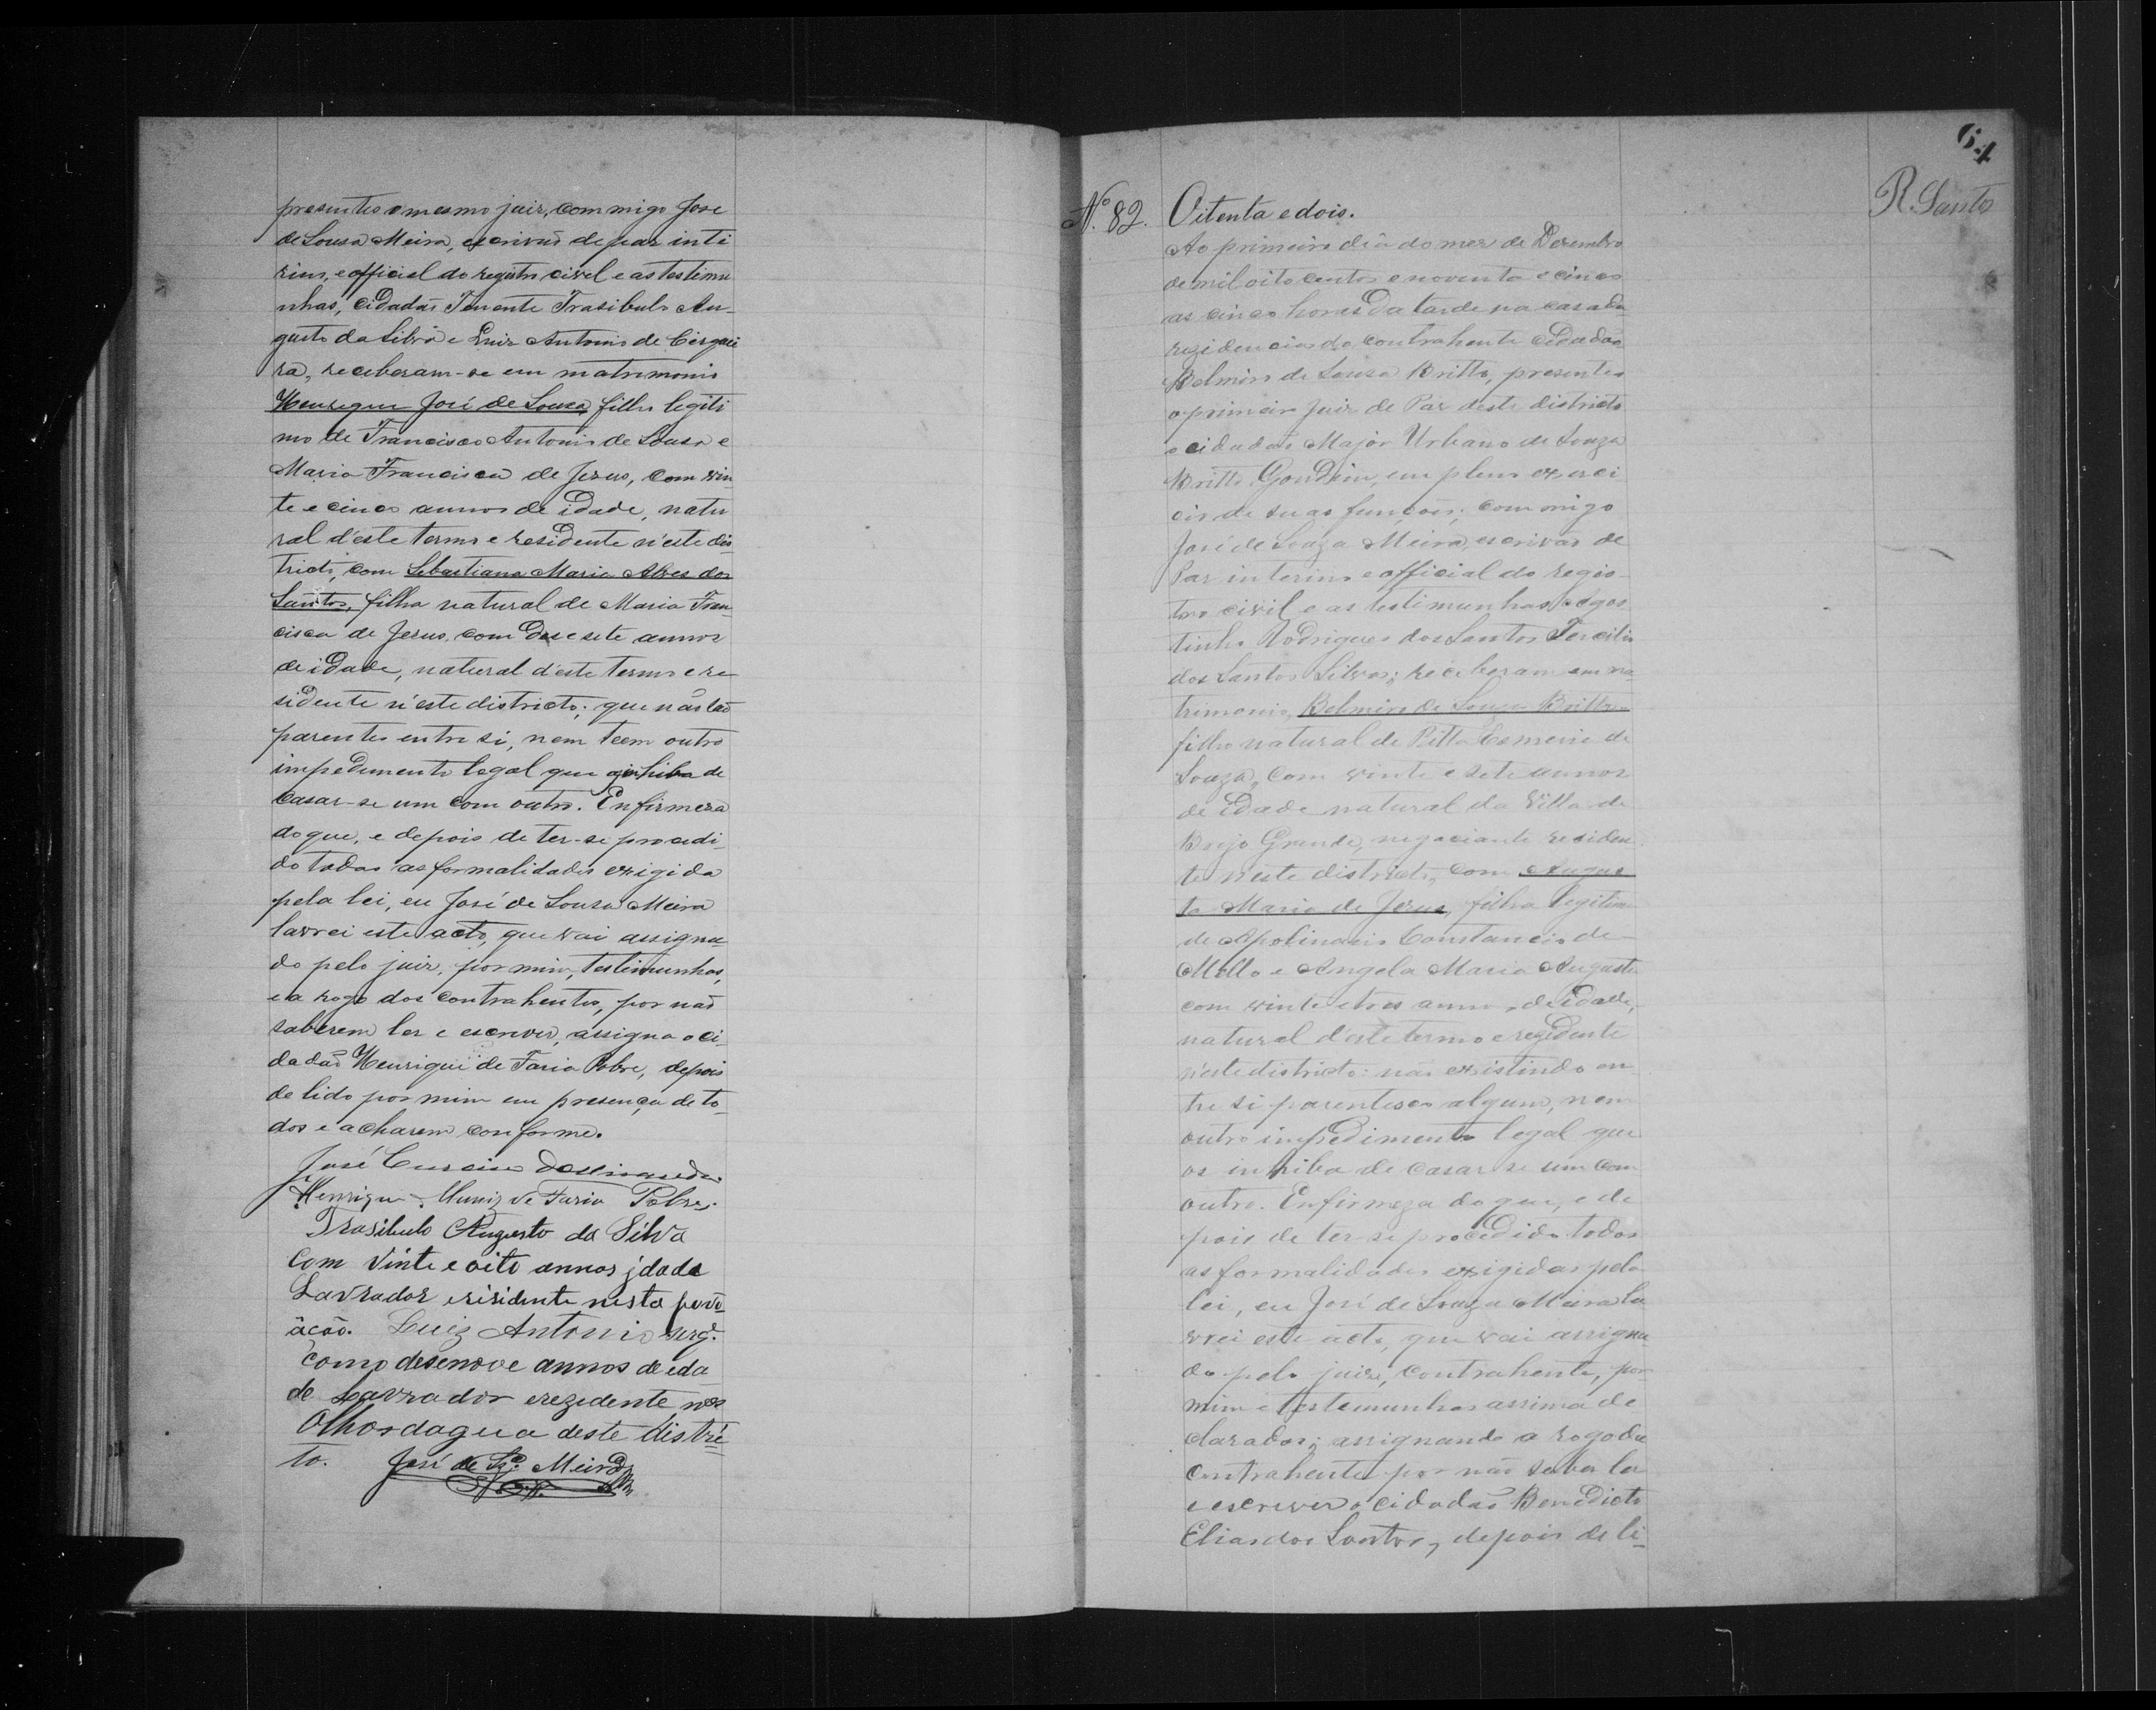 presentes o mesmo juiz, commigo Jose
de Sousa Meira, escrivaõ de paz inte
rino, e official do registro civel e as testimu
nhas, Cidadaõ Tenente Trasibulo Au-
gusto da Silva e Luiz Antonio de Cerquei
ra, receberam-se em matrimonio
Henrique José de Souza filho legiti
mo de Francisco Antonio de Sousa e
Maria Francisca de Jezus, com vin
te e cinco annos de idade, natu
ral d'este termo e residente n'este dis
tricto, com Sebastiana Maria Alves dos
Santos, filha natural de Maria Fran
cisca de Jesus, com desesete annos
de idade, natural d'este termo e re
sidente n'este districto; que naõ saõ
parentes entre si, nem teem outro
impedimento legal que os inhiba de
casar-se um com outro. Enfirmeza
do que, e depois de ter-se procedi
do todas as formalidades exigida
pela lei, eu José de Sousa Meira
lavrei este acto, que vai assigna
do pelo juiz, por mim, testimunhas,
e a rogo dos contrahentes, por naõ
saberem ler e escrever, assigna o ci
dadaõ Henrique de Faria Pobre, depois
de lido por mim em presença de to
dos e acharem conforme.
José
Henrique Muniz de Faria Pobre.
Trasibulo Augusto da Silva
Com vinte e oito annos jdade
Lavrador e risidente nesta povo
acão. Luiz Antonio serqr.ª
como desenove annos de eda
de Lavrador e rezedente nos
Olhosdagua deste distri
to. José de Sz.ª Meira
64
R. Santo
N.º 82. Oitenta e dois.
Ao primeiro dia do mez de Dezembro
de mil oito centos e noventa e cinco
as cinco horas da tarde na casa da
rezidencia do contrahente Cidadaõ
Belmiro de Sousa Britto, presentes
o primeiro Juiz de Paz deste districto
o cidadaõ Major Urbano de Souza
Britto Gondim, em pleno exerci
cio de suas funcoes; commigo
José de Souza Meira, escrivaõ de
Paz interino e official do regis-
tro civil e as testimunhas Agos
tinho Rodrigues dos Santos Tercilio
dos Santos Silva; receberam em ma
trimonio, Belmiro de Souza Britto
filho natural de Ritta de
Souza, com vinte e sete annos
de idade natural da Villa de
Brejo Grande, negociante residen
te n'este districto, com Augus
ta Maria de Jesus, filha legitima
de Apolinario Constancio de
Mello e Angela Maria Augusta
com vinte e tres annos de idade,
natural d'este termo e rezidente
n'este districto: naõ existindo en
tre si parentesco algum, nem
outro impedimento legal que
os inhiba de casar se um com
outro. Enfirmeza do que, e de
pois de ter-se procedido todas
as formalidades exigidas pela
lei, eu José de Souza Meira la
vrei este acto, que vai assigna
do pelo juiz, contrahente, por
mim e testemunhas assima de
claradas; assignando a rogo da
contrahente por naõ saber ler
e escrever o cidadaõ Benedicto
Elias dos Santos, depois de li-